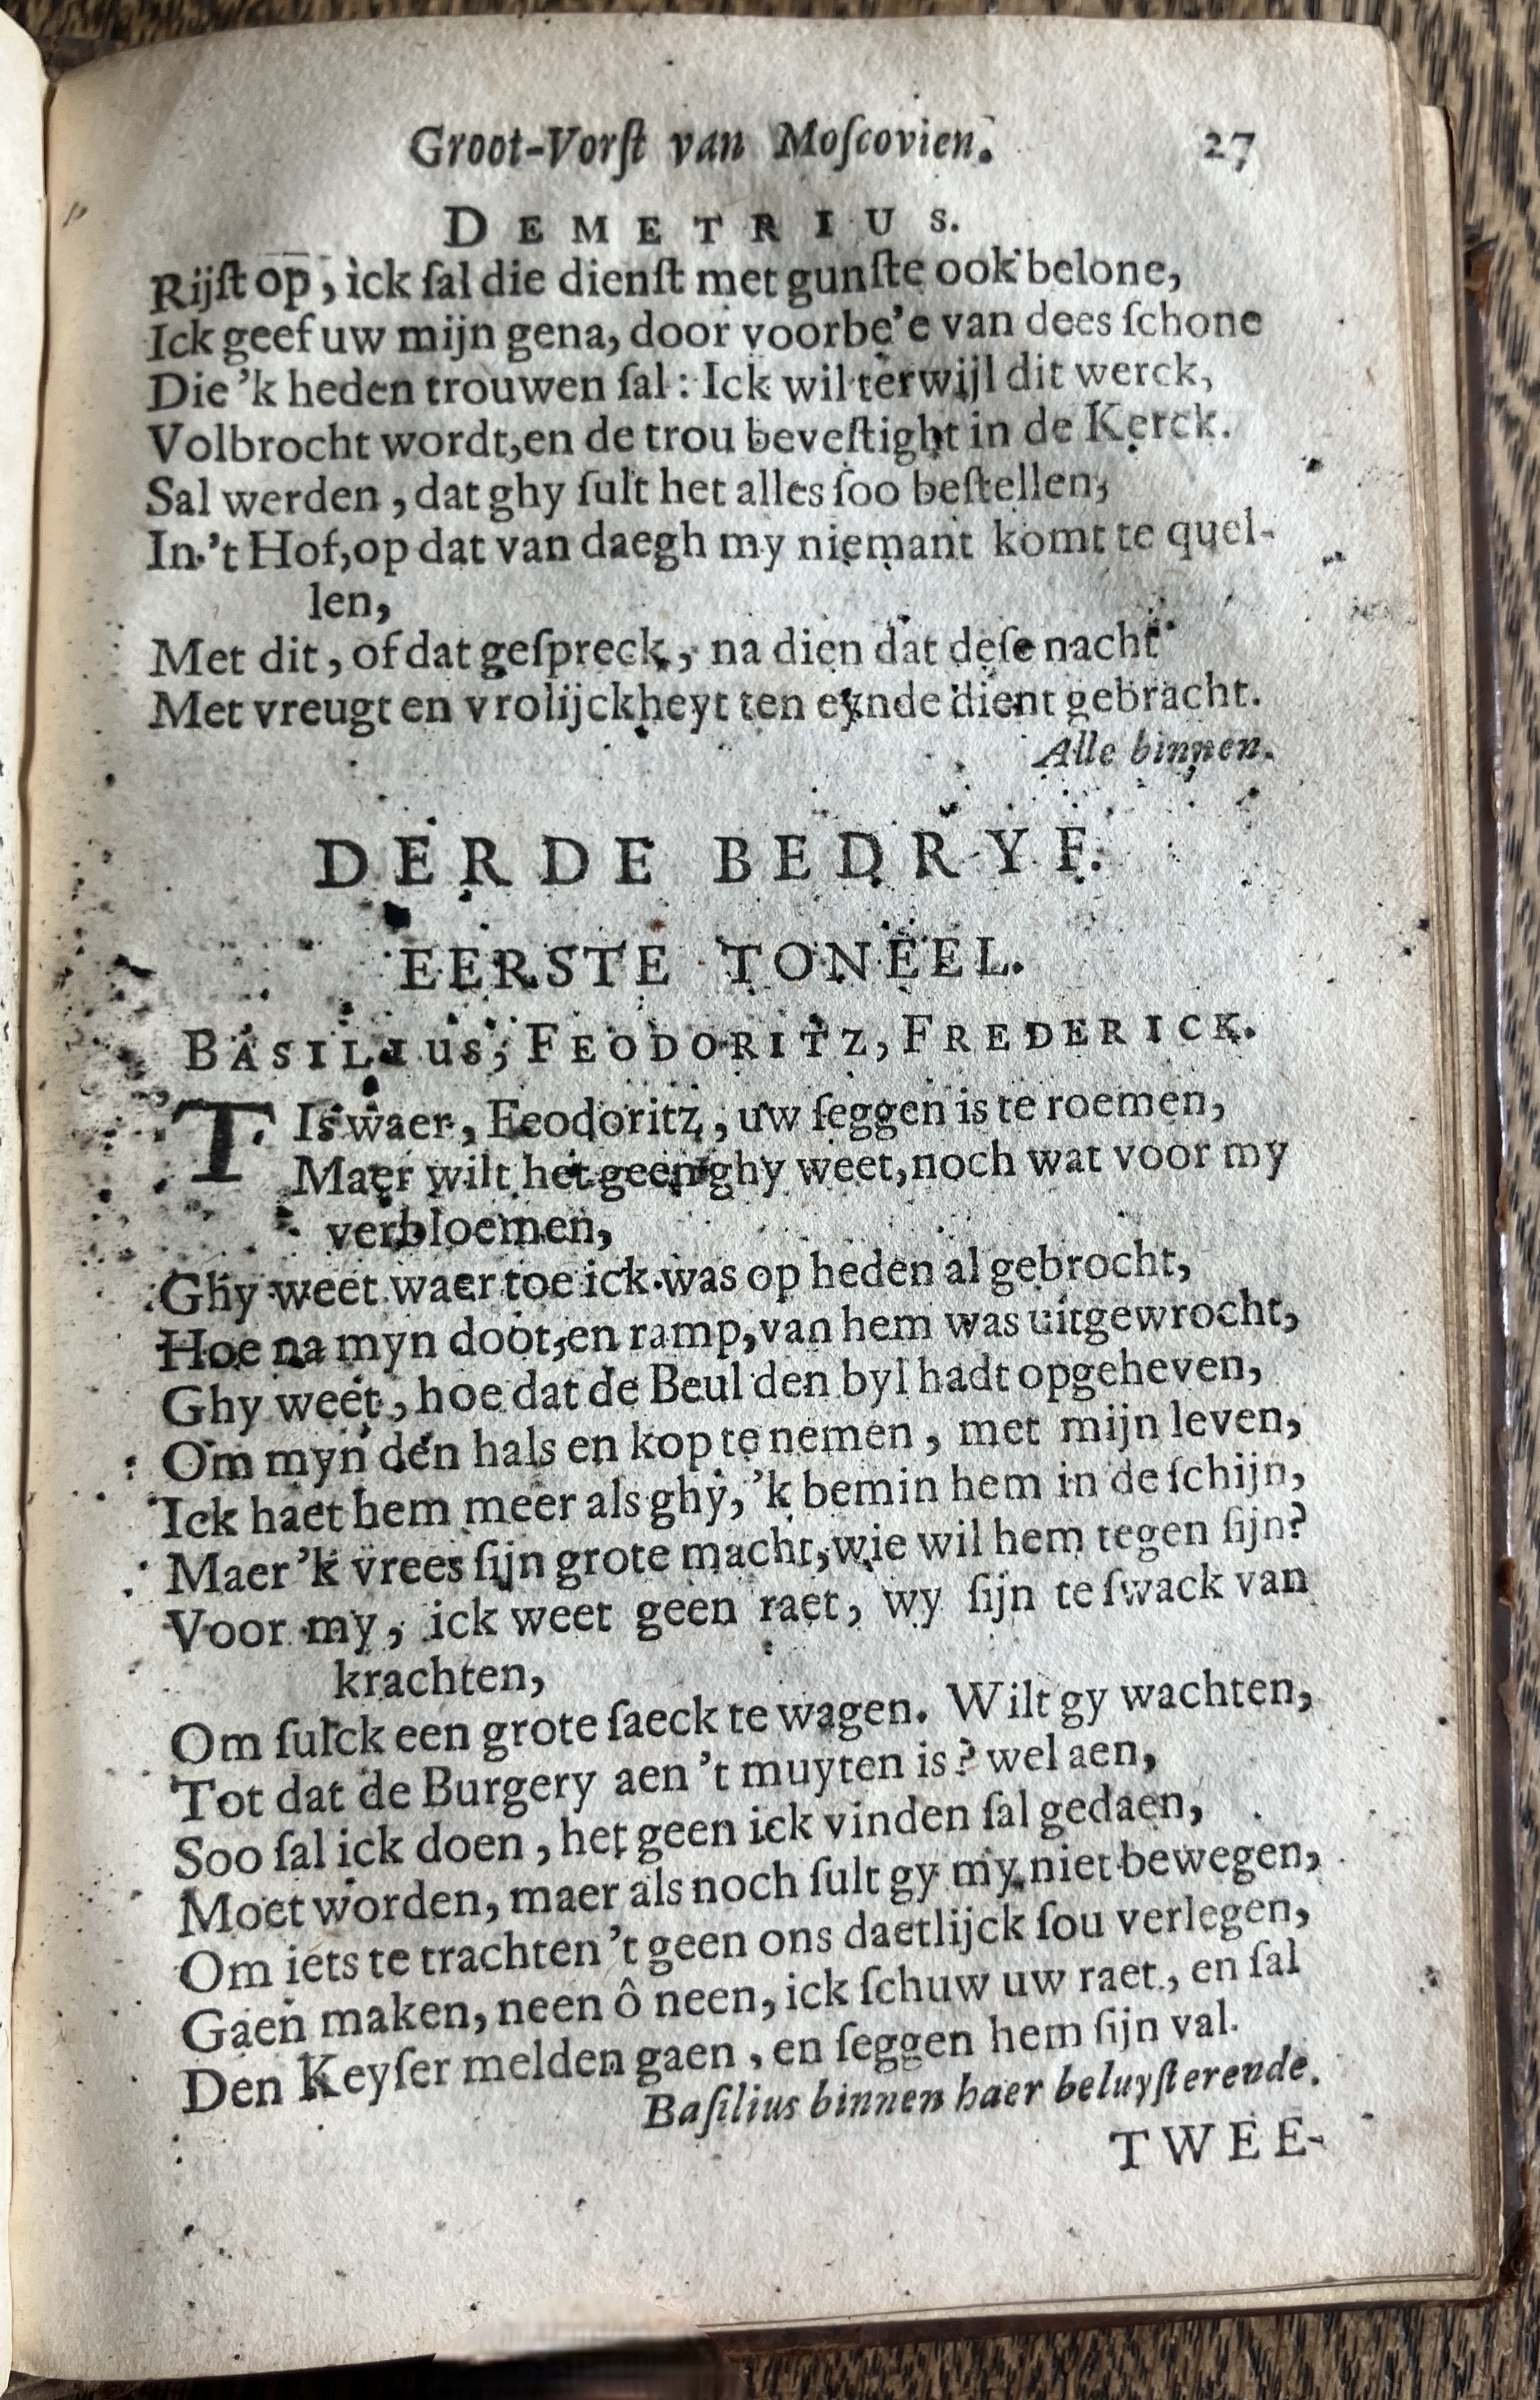 Groot-Vorſt van Moſcovien. 27
DEMETRIUS.
Rijſt op, ick ſal die dienſt met gunſte ook belone,
Ick geef uw mijn gena, door voorbe'e van dees ſchone
Die 'k heden trouwen ſal: Ick wil terwijl dit werck,
Volbrocht wordt, en de trou beveſtight in de Kerck.
Sal werden, dat ghy ſult het alles ſoo beſtellen,
In 't Hof, op dat van daegh my niemant komt te quel-
len,
Met dit, of dat geſpreck, na dien dat deſe nacht
Met vreugt en vrolijckheyt ten eynde dient gebracht.
Alle binnen.
DERDE BEDRYF.
EERSTE TONEEL.
BASILIUS, FEODORITZ, FREDERICK.
T Is waer, Feodoritz, uw ſeggen is te roemen,
Maer wilt het geen ghy weet, noch wat voor my
verbloemen,
Ghy weet waer toe ick was op heden al gebrocht,
Hoe na myn doot, en ramp, van hem was uitgewrocht,
Ghy weet, hoe dat de Beul den byl hadt opgeheven,
Om myn den hals en kop te nemen, met mijn leven,
Ick haet hem meer als ghy, 'k bemin hem in de ſchijn,
Maer 'k vrees ſijn grote macht, wie wil hem tegen ſijn?
Voor my, ick weet geen raet, wy ſijn te ſwack van
krachten,
Om ſulck een grote ſaeck te wagen. Wilt gy wachten,
Tot dat de Burgery aen 't muyten is? wel aen,
Soo ſal ick doen, het geen ick vinden ſal gedaen,
Moet worden, maer als noch ſult gy my niet bewegen,
Om iets te trachten 't geen ons daetlijck ſou verlegen,
Gaen maken, neen ô neen, ick ſchuw uw raet, en ſal
Den Keyſer melden gaen, en ſeggen hem ſijn val.
Baſilius binnen haer beluyſterende.
TWEE-